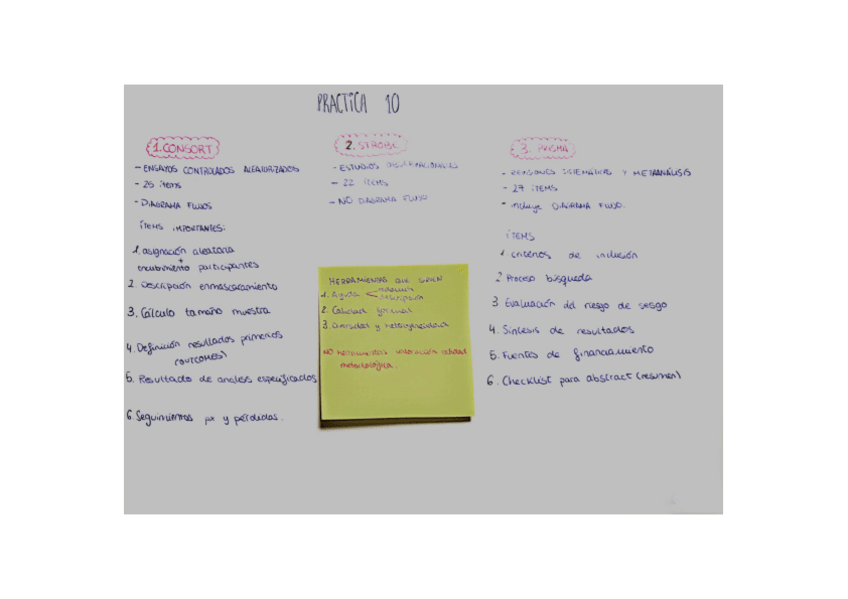 PRACTICA 10
1. CONSORT
- ENSAYOS CONTROLADOS ALEATORIZADOS
- 25 ítems
- DIAGRAMA FLUJOS
ÍTEMS IMPORTANTES:
1. asignación aleatoria
+
encubrimiento participantes
2. Descripción enmascaramiento
3. Cálculo tamaño muestra
4. Definición resultados primarios
(OUTCOMES)
5. Resultado de analisis especificados
6. Seguimientos px y pérdidas.
2. STROBE
- ESTUDIOS OBSERVACIONALES
- 22 ITEMS
- NO DIAGRAMA FLUJO
HERRAMIENTAS QUE SIRVEN
1. Ayuda < redacción
descripción
2. Calidad
3. y heterogeneidad
NO herramientas valoración calidad
metodológica.
3. PRISMA
- REVISIONES SISTEMÁTICAS Y METAANÁLISIS
- 27 ITEMS
- incluye DIAGRAMA FLUJO.
ÍTEMS
1 criterios de inclusión
2 Proceso búsqueda
3 Evaluación del riesgo de sesgo
4. Síntesis de resultados
5. Fuentes de financiamiento
6. Checklist para abstract (resumen)